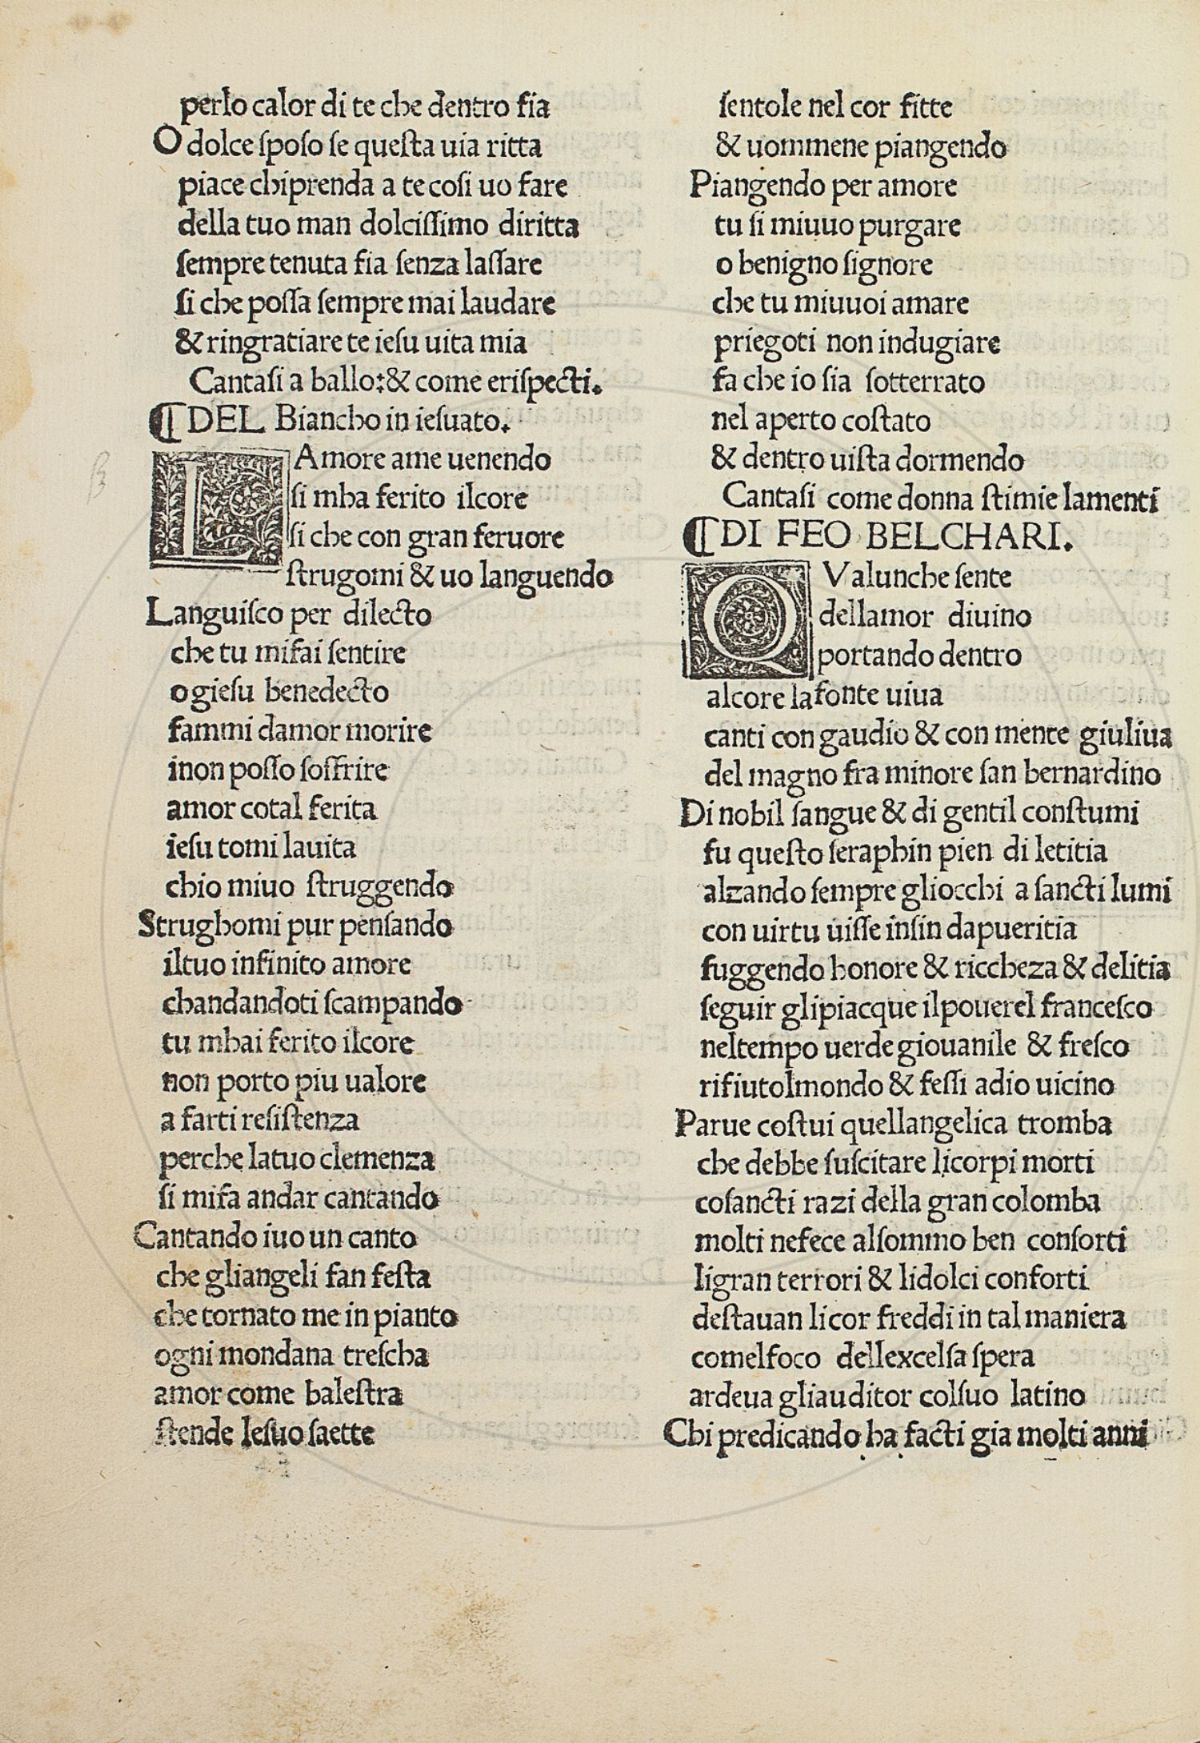 perlo calor di te che dentro fia
O dolce ſpoſo ſe queſta uia ritta
piace chiprenda a te coſi uo fare
della tuo man dolciſſimo diritta
ſempre tenuta fia ſenza laſſare
ſi che poſſa ſempre mai laudare
& ringratiare te ieſu uita mia
Cantaſi a ballo:& come eriſpecti.
¶ DEL Biancho in ieſuato.
LAmore ame uenendo
ſi mha ferito ilcore
ſi che con gran feruore
ſtrugomi & uo languendo
Languiſco per dilecto
che tu mifai ſentire
o gieſu benedecto
fammi damor morire
inon poſſo ſoffrire
amor cotal ferita
ieſu tomi lauita
chio miuo ſtruggendo
Strughomi pur penſando
iltuo infinito amore
chandandoti ſcampando
tu mhai ferito ilcore
non porto piu ualore
a farti reſiſtenza
perche latuo clemenza
ſi mifa andar cantando
Cantando iuo un canto
che gliangeli fan feſta
che tornato me in pianto
ogni mondana treſcha
amor come baleſtra
ſtende leſuo ſaette
ſentole nel cor fitte
& uommene piangendo
Piangendo per amore
tu ſi miuuo purgare
o benigno ſignore
che tu miuuoi amare
priegoti non indugiare
fa che io ſia ſotterrato
nel aperto coſtato
& dentro uiſta dormendo
Cantaſi come donna ſtimie lamenti
¶ DI FEO BELCHARI.
QValunche ſente
dellamor diuino
portando dentro
alcore lafonte uiua
canti con gaudio & con mente giuliua
del magno fra minore ſan bernardino
Di nobil ſangue & di gentil conſtumi
fu queſto ſeraphin pien di letitia
alzando ſempre gliocchi a ſancti lumi
con uirtu uiſſe inſin dapueritia
fuggendo honore & riccheza & delitia
ſeguir glipiacque ilpouerel franceſco
neltempo uerde giouanile & freſco
rifiutolmondo & feſſi adio uicino
Parue coſtui quellangelica tromba
che debbe ſuſcitare licorpi morti
coſancti razi della gran colomba
molti nefece alſommo ben conſorti
ligran terrori & lidolci conforti
deſtauan licor freddi in tal maniera
comelfoco dellexcelſa ſpera
ardeua gliauditor colſuo latino
Chi predicando ha facti gia molti anni